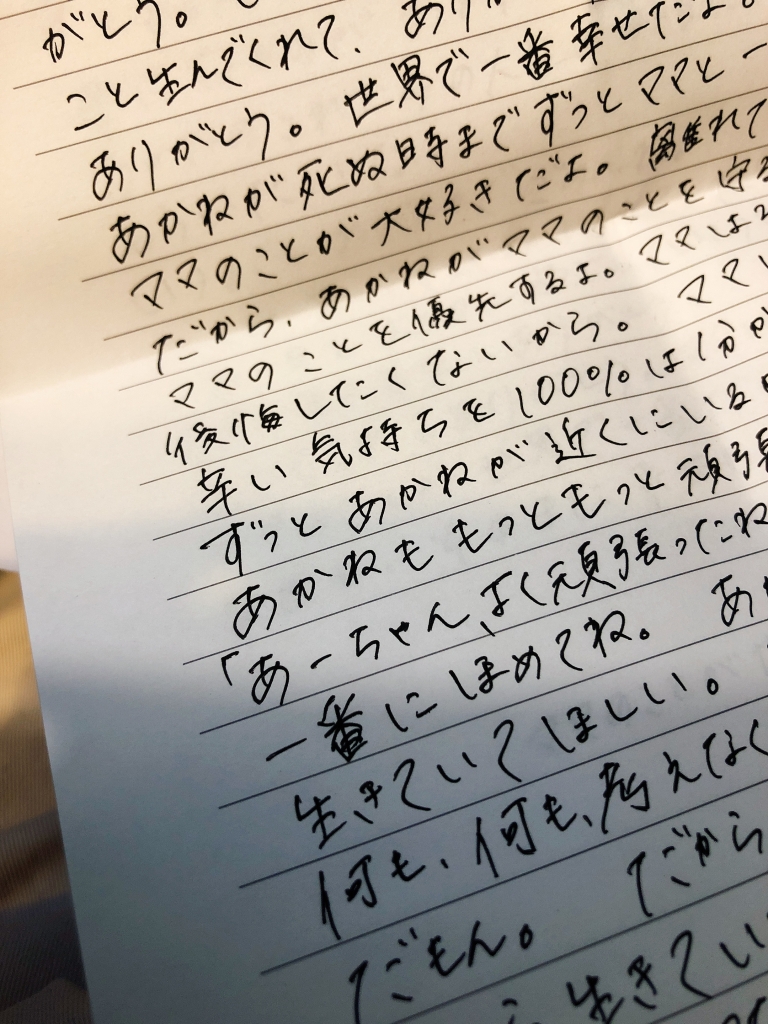 がとう。
こと生んでくれて、あり
ありがとう。世界で一番幸せだよ。
あかねが死ぬ時までずっとママと一
ママのことが大好きだよ。離れて
だから、あかねがママのことを守る
ママのことを優先するよ。ママは
後悔したくないから。ママ
辛い気持ちを100%は1分か
ずっとあかねが近くにいる
あかねももっともっと頑張
「あーちゃん、よく頑張ったね
一番にほめてね。あか
生きていてほしい。
何も、何も、考えなく
だもん。だから
生きてい